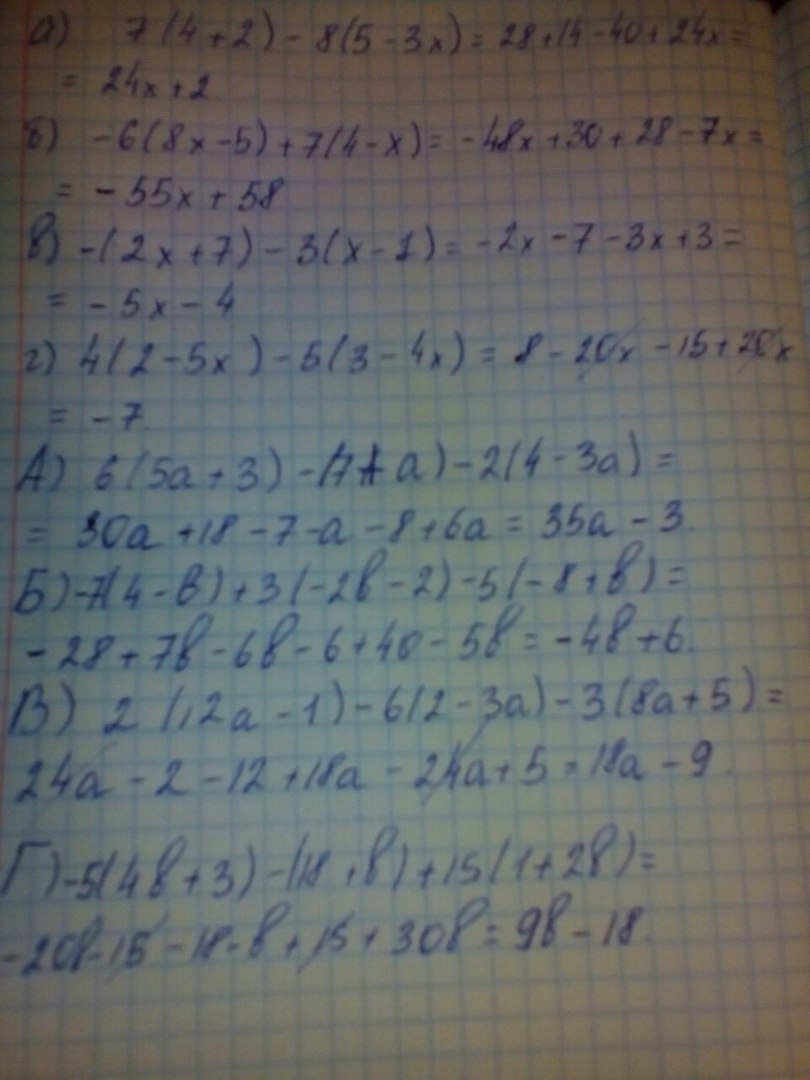 а) 7(4+2)-8(5-3x)=28+14-40+24x=
= 24x+2
б) -6(8x-5)+7(4-x)=-48x+30+28-7x=
= -55x+58
в) -(2x+7)-3(x-1)=-2x-7-3x+3=
= -5x-4
г) 4(2-5x)-5(3-4x)=8-20x-15+20x
= -7
А) 6(5a+3)-(7+a)-2(4-3a)=
= 30a+18-7-a-8+6a=35a-3
Б) -7(4-b)+3(-2b-2)-5(-8+b)=
-28+7b-6b-6+40-5b=-4b+6.
В) 2(12a-1)-6(2-3a)-3(8a+5)=
24a-2-12+18a-24a+5=18a-9.
Г) -5(4b+3)-(18+b)+15(1+2b)=
-20b-15-18-b+15+30b=9b-18.